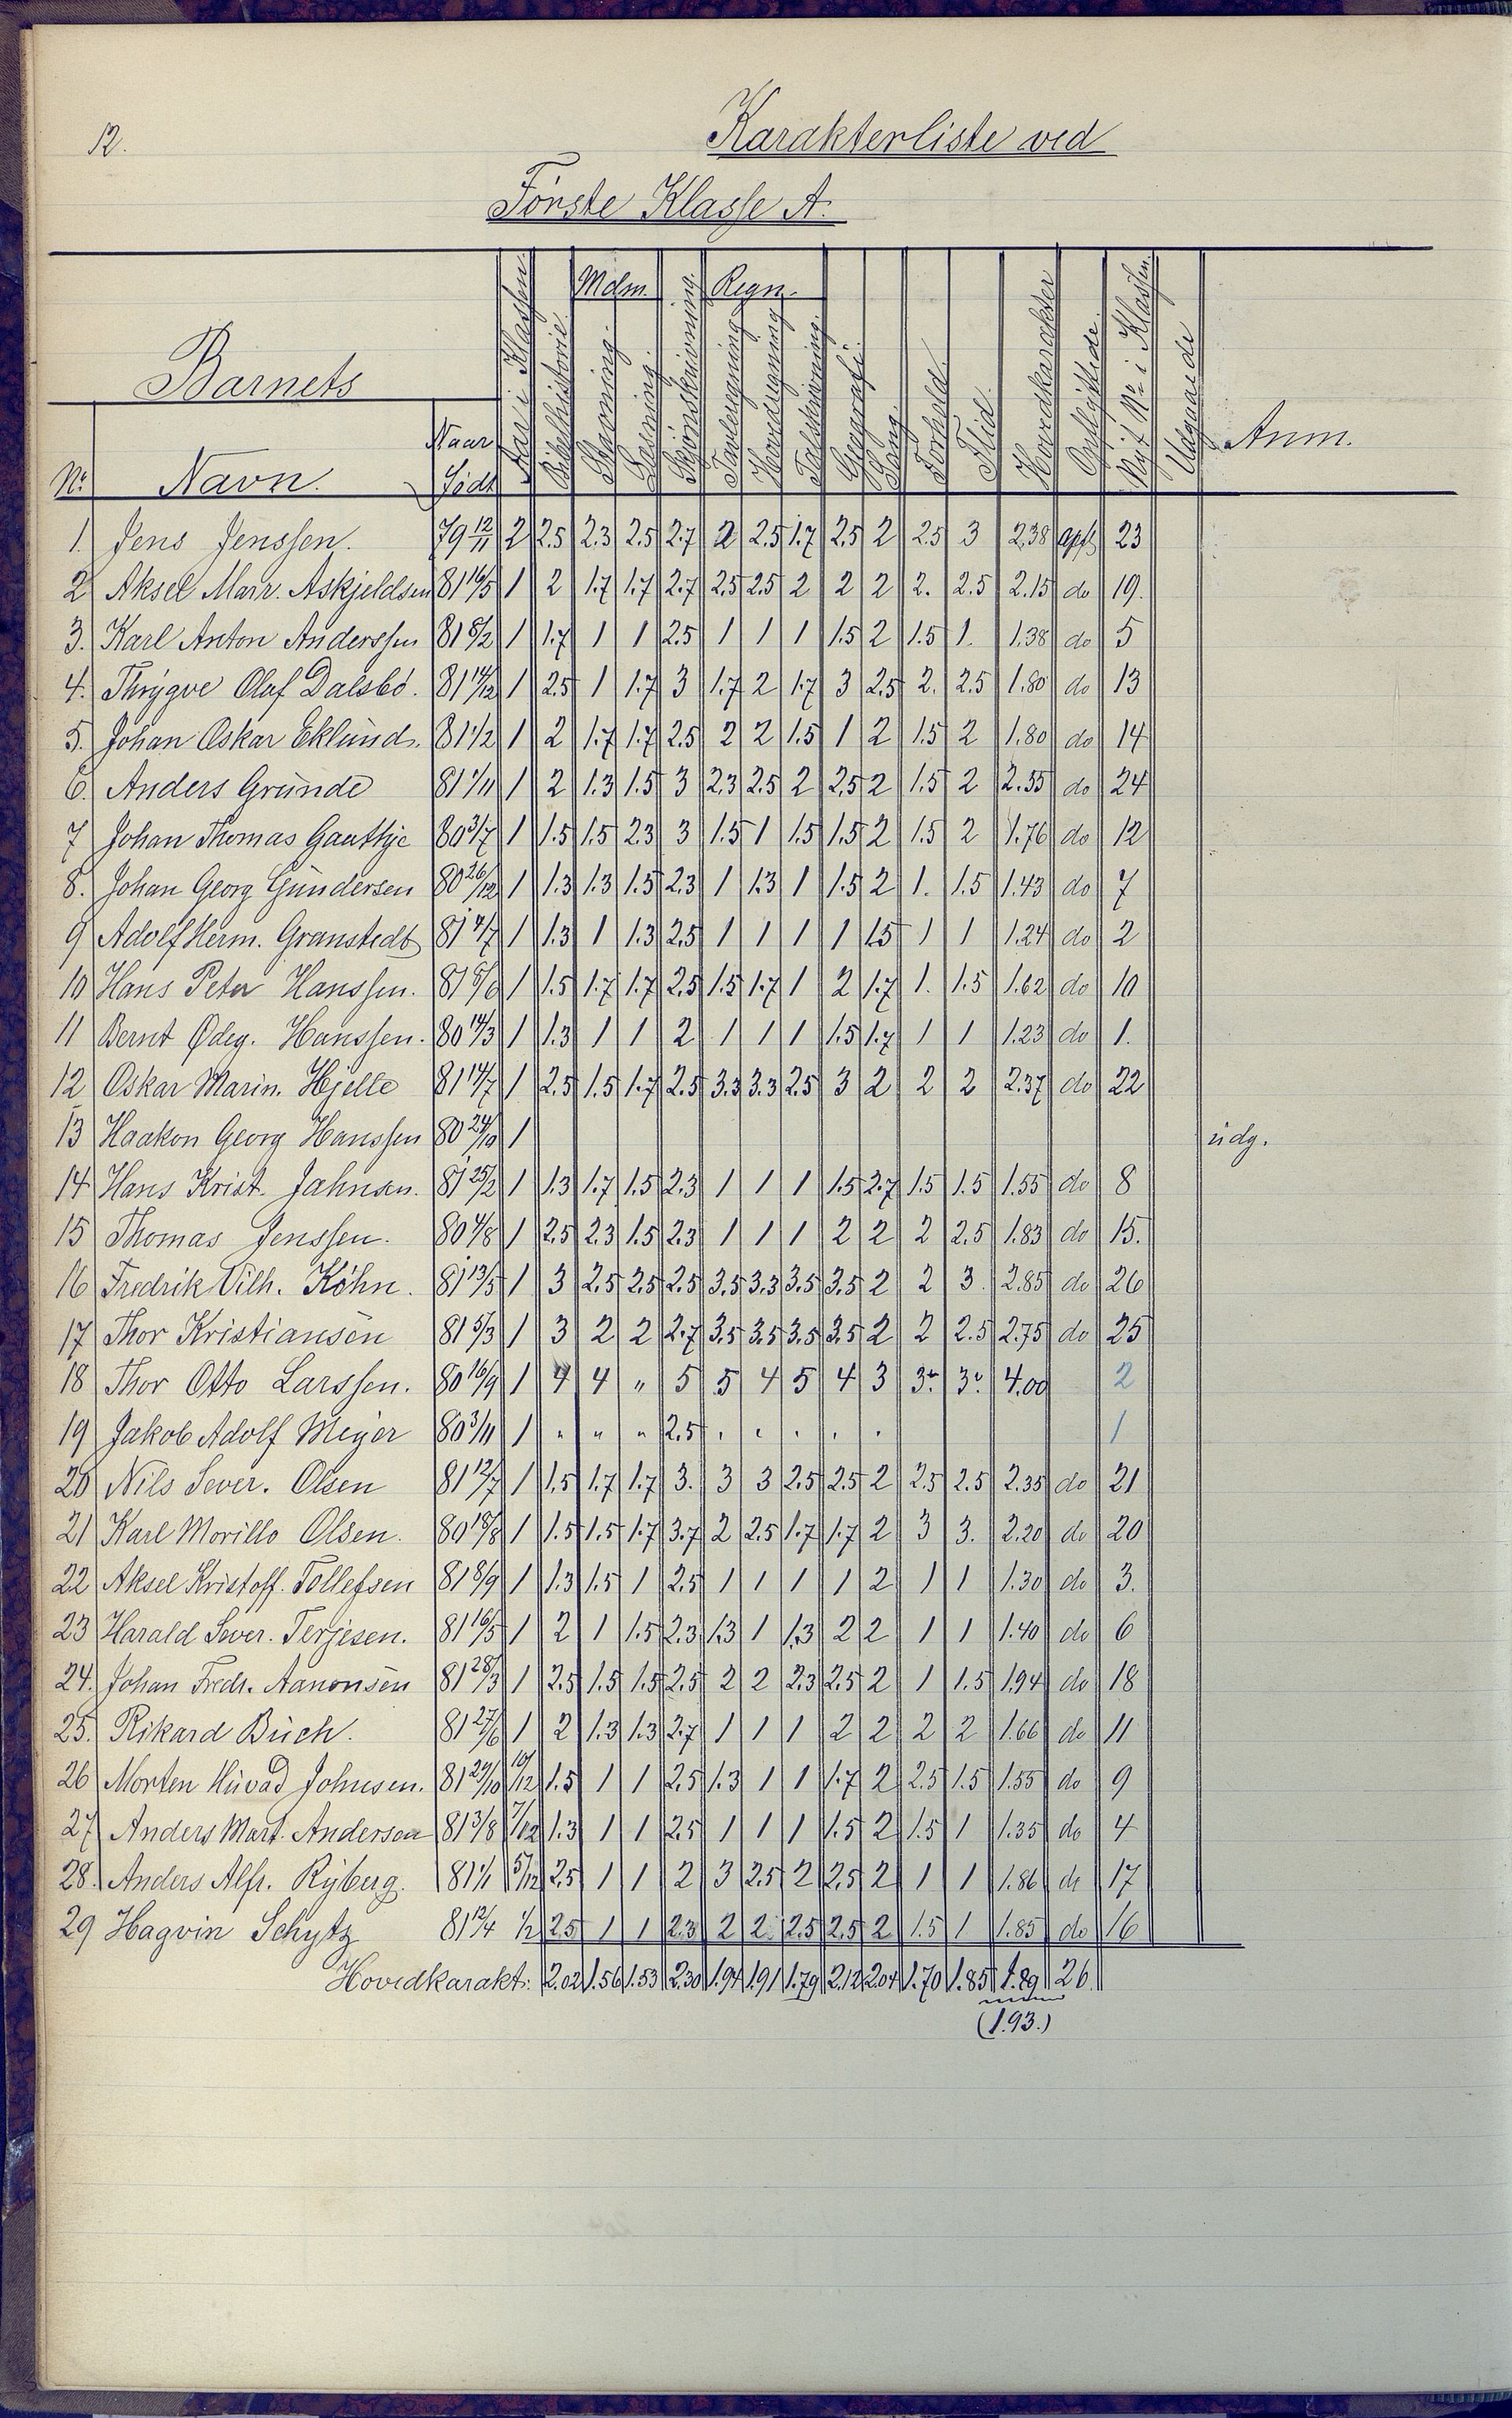 12.
Karakterliste ved
Første Klasse A.
Barnets
Nr. Navn. Naar Født Aar i Klassen. Bibelhistorie. Mdsm. Stavning. Læsning. Skjønskrivning. Regn. Tavleregning Hovedregning Talskrivning. Geografi. Sang. Forhold Flid. Hovedkarakter Opflyttede. Nyt Nr i Klassen. Udgaaede Anm.
1. Jens Jenssen. 79 12/11 2 2.5 2.3 2.5 2.7 2 2.5 1.7 2.5 2 2.5 3 2.38 opfl. 23
2 Aksel Marr. Askjeldsen 81 16/5 1 2 1.7 1.7 2.7 2.5 2.5 2 2 2 2. 2.5 2.15 do 19.
3. Karl Anton Anderssen 81 8/2 1 1.7 1 1 2.5 1 1 1 1.5 2 1.5 1. 1.38 do 5
4. Thrygve Olaf Dalsbö. 81 14/12 1 2.5 1 1.7 3 1.7 2 1.7 3 2.5 2. 2.5 1.80 do 13
5. Johan Oskar Eklund. 81 1/2 1 2 1.7 1.7 2.5 2 2 1.5 1 2 1.5 2 1.80 do 14
6. Anders Grunde 81 1/11 1 2 1.3 1.5 3 2.3 2.5 2 2.5 2 1.5 2 2.55 do 24
7 Johan Thomas Gautthje 80 3/7 1 1.5 1.5 2.3 3 1.5 1 1.5 1.5 2 1.5 2 1.76 do 12
8. Johan Georg Gundersen 80 26/12 1 1.3 1.3 1.5 2.3 1 1.3 1 1.5 2 1. 1.5 1.43 do 7
9 Adolf Herm. Granstedt 81 4/7 1 1.3 1 1.3 2.5 1 1 1 1 1.5 1 1 1.24 do 2
10 Hans Peter Hanssen. 81 8/6 1 1.5 1.7 1.7 2.5 1.5 1.7 1 2 1.7 1. 1.5 1.62 do 10
11 Bernt Ødeg. Hanssen. 80 14/3 1 1.3 1 1 2 1 1 1 1.5 1.7 1 1 1.23 do 1.
12 Oskar Marin. Hjelle 81 14/7 1 2.5 1.5 1.7 2.5 3.3 3.3 2.5 3 2 2 2 2.37 do 22
13 Haakon Georg Hanssen 80 24/10 1 udg.
14 Hans Krist. Jahnsen. 81 25/2 1 1.3 1.7 1.5 2.3 1 1 1 1.5 2.7 1.5 1.5 1.55 do 8
15 Thomas Jenssen. 80 4/8 1 2.5 2.3 1.5 2.3 1 1 1 2 2 2 2.5 1.83 do 15.
16 Fredrik Vilh. Köhn. 81 13/5 1 3 2.5 2.5 2.5 3.5 3.3 3.5 3.5 2 2 3. 2.85 do 26
17 Thor Kristiansen 81 5/3 1 3 2 2 2.7 3.5 3.5 3.5 3.5 2 2 2.5 2.75 do 25
18 Thor Otto Larssen. 80 16/9 1 4 4 " 5 5 4 5 4 3 3 3 4.00 2
19 Jakob Adolf Meyer 80 3/11 1 " " " 2.5 " " " " " 1
20 Nils Sever. Olsen 81 12/7 1 1.5 1.7 1.7 3. 3 3 2.5 2.5 2 2.5 2.5 2.35 do 21
21 Karl Morillo Olsen. 80 18/8 1 1.5 1.5 1.7 3.7 2 2.5 1.7 1.7 2 3 3. 2.20 do 20
22 Aksel Kristoff. Tollefsen 81 8/9 1 1.3 1.5 1 2.5 1 1 1 1 2 1 1 1.30 do 3.
23 Harald Sever. Terjesen. 81 16/5 1 2 1 1.5 2.3 1.3 1 1.3 2 2 1 1 1.40 do 6
24. Johan Fredr. Aanonsen 81 28/3 1 2.5 1.5 1.5 2.5 2 2 2.3 2.5 2 1 1.5 1.94 do 18
25. Rikard Buch. 81 27/6 1 2 1.3 1.3 2.7 1 1 1 2 2 2 2 1.66 do 11
26 Morten Huvad Johnsen. 81 29/10 10/12 1.5 1 1 2.5 1.3 1 1 1.7 2 2.5 1.5 1.55 do 9
27 Anders Mart. Andersen 81 3/8 7/12 1.3 1 1 2.5 1 1 1 1.5 2 1.5 1 1.35 do 4
28. Anders Alfr. Ryberg. 81 1/1 5/12 2.5 1 1 2 3 2.5 2 2.5 2 1 1 1.86 do 17
29 Hagvin Schytz 81 12/4 1/2 2.5 1 1 2.3 2 2 2.5 2.5 2 1.5 1 1.85 do 16
Hovedkarakt: 2.02 1.56 1.53 2.30 1.94 1.91 1.79 2.12 2.04 1.70 1.85 1.89 26.
(1.93.)